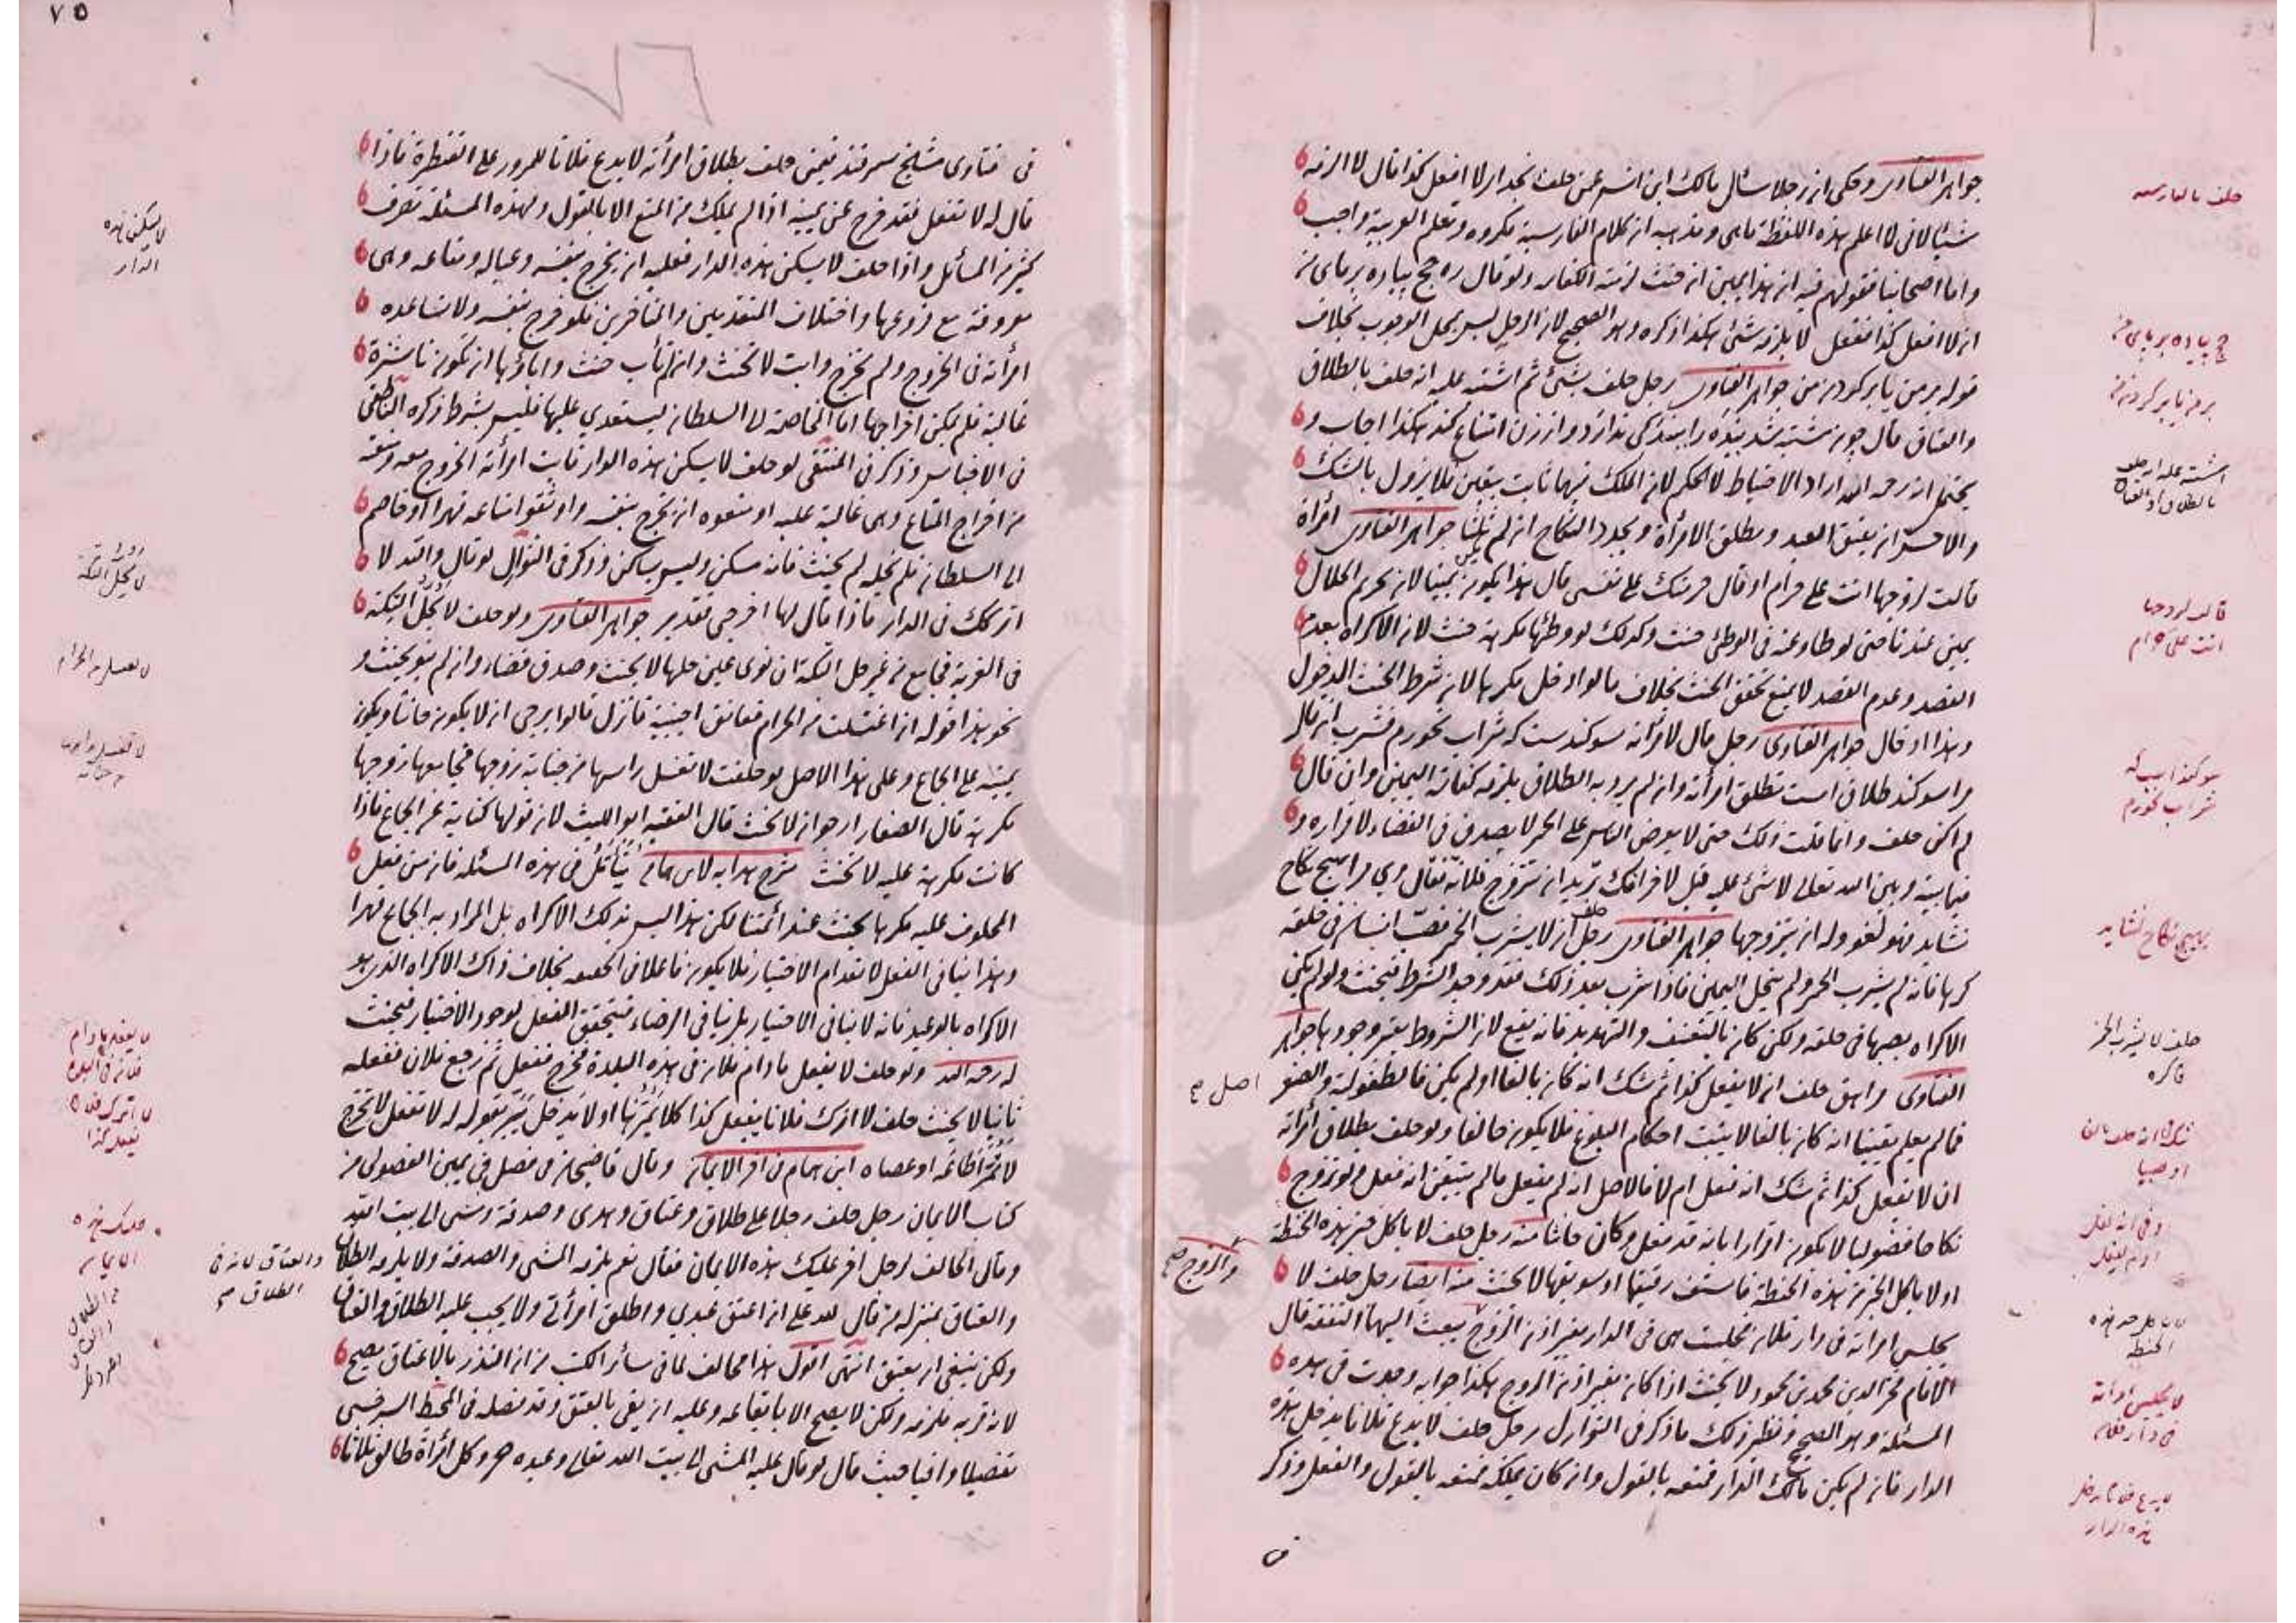 جواهر الفتاوى وحكى ان رجلا سال مالك ابن انس عمن حلف بخداى لا افعل كذا قال لا الزمه
شيئا لانى لا اعلم هذه اللفظة ماهى ومذهبه ان كلام الفارسية مكروه وتعلم العربية واجب
واما اصحابنا فقولهم فيه ان هذا يمين ان حنث لزمته الكفارة ولو قال ره حج پياده بر پاى من
ان لا افعل كذا ففعل لا يلزمه شئ هكذا ذكره وهو الصحيح لان الرجل ليس بمحل الوجوب بخلاف
قوله بر من يا بر كردن من جواهر الفتاوى رجل حلف بشئ ثم اشتبه عليه انه حلف بالطلاق
والعتاق قال چون مشتبه شد بنده را ببندكى ندارد و از زن امتناع كند هكذا اجاب و
يحتمل انه رحمه الله اراد الاحتياط لا الحكم لان الملك فيهما ثابت بيقين فلا يزول بالشك
والاحسن ان يعتق العبد ويطلق الامرأة ويجدد النكاح ان لم ثلثا جواهر الفتاوى امرأة
قالت لزوجها انت على حرام او قال حرمتك على نفسى قال هذا يكون يمينا لان تحريم الحلال
يمين عندنا حتى لو طاوعته فى الوطئ حنثت وكذلك لو وطئها مكرهة حنثت لان الاكراه يعدم
القصد وعدم القصد لا يمنع تحقق الحنث بخلاف ما لو ادخل مكرها لان شرط الحنث الدخول
وهذا ادخال جواهر الفتاوى رجل قال لامرأته سوكندست كه شراب نخورم فشرب ان قال
مرا سوكند طلاق است تطلق امرأته وان لم يرد به الطلاق يلزمه كفارة اليمين وان قال
لم اكن حلفت وانما قلت ذلك حتى لا يعرض الناس على الخمر لا يصدق فى القضاء لاقراره و
فيما بينه وبين الله تعالى لا شئ عليه قيل لامرأتك تريد ان تتزوج فلانة فقال وى مرا بهيچ نكاح
نشايد فهو لغو وله ان يتزوجها جواهر الفتاوى رجل حلف ان لا يشرب الخمر فصب انسان فى حلقه
كرها فانه لم يشرب الخمر ولم ينحل اليمين فاذا شرب بعد ذلك فقد وجد الشرط فيحنث ولو لم يكن
الاكراه بصبها فى حلقه ولكن كان بالتعنيف والتهديد فانه يقع لان الشروط يعتبر وجودها جواهر
الفتاوى مراهق حلف ان لا يفعل كذا ثم شك انه كان بالغا او لم يكن فالطفولية والصغر
فما لم يعلم يقينا انه كان بالغا لا يثبت احكام البلوغ فلا يكون حالفا ولو حلف بطلاق امرأته
ان لا يفعل كذا ثم شك انه فعل ام لا فالاصل انه لم يفعل ما لم يتيقن انه فعل ولو تزوج
نكاحا فضوليا لا يكون اقرارا بانه قد فعل وكان حانثا منه رجل حلف لا ياكل من هذه الحنطة
او لا ياكل الخبز من هذه الحنطة فاستف دقيقها او سويقها لا يحنث منه ايضا رجل حلف لا
يجلس امرأته فى دار فلان فجلست هى فى الدار بغير اذن الزوج يبعث اليها النفقة قال
الامام فخر الدين محمد بن محمود لا يحنث اذا كان بغير اذن الزوج هكذا جوابه وجدت فى هذه
المسئلة وهو الصحيح ونظير ذلك ما ذكر فى النوازل رجل حلف لا يدع فلانا يدخل هذه
الدار فان لم يكن مالك الدار فمنعه بالقول وان كان يملكه فمنعه بالقول والفعل وذكر
حلف بالفارسية
حج پياده بر پاى من
بر من يا بر كردن من
اشتبه عليه انه حلف
بالطلاق او العتاق
قالت لزوجها
انت على حرام
سوكند است كه
شراب نخورم
بهيچ نكاح نشايد
حلف لا يشرب الخمر
فاكره
اصل صح
شك انه حلف بالغا
او صبيا
والزوج صح
لا ياكل من هذه
الحنطة
لا يجلس امرأته
فى دار فلان
لا يدع فلانا يدخل
هذه الدار
فى
٧٥
٧٦
فى فتاوى مشايخ سمرقند فيمن حلف بطلاق امرأته لا يدع فلانا للمرور على القنطرة فاذا
قال له لا تفعل فقد خرج عن يمينه اذا لم يملك من المنع الا بالقول وبهذه المسئلة تعرف
كثير من المسائل واذا حلف لا يسكن هذه الدار فعليه ان يخرج بنفسه وعياله ومتاعه وهى
معروفة مع فروعها واختلاف المتقدمين والمتاخرين فلو خرج بنفسه ولا تساعده
امرأته فى الخروج ولم تخرج وابت لا تحنث وان لم تأب حنث واباؤها ان تكون ناشزة
غالبة فلم يمكن اخراجها اما المخاصمة الى السلطان ليستعدي عليها فليس بشرط ذكره الناطفى
فى الاجناس وذكر فى المنتقى لو حلف لا يسكن هذه الدار فابت امرأته الخروج معه ومنعته
من اخراج المتاع وهى غالبة عليه او منعوه ان يخرج بنفسه واوثقوا متاعه قهرا او خاصم
الى السلطان فلم يخله لم يحنث فانه مسكن وليس بساكن وذكر فى النوازل لو قال والله لا
اتركك فى الدار فاذا قال لها اخرجى تقدير جواهر الفتاوى ولو حلف لا يحل التكة
فى الغربة فجامع من غير حل التكة ان نوى عين حلها لا يحنث وصدق قضاء وان لم ينو يحنث و
نحو هذا قوله ان اغتسلت من الحرام فعانق اجنبية فانزل قالوا يرجى ان لا يكون حانثا ويكون
يمينه على الجماع وعلى هذا الاصل لو حلفت لا تغسل راسها من جنابة زوجها فجامعها زوجها
مكرهة قال الصفار ارجو ان لا تحنث قال الفقيه ابو الليث لان قولها كناية عن الجماع فاذا
كانت مكرهة عليه لا تحنث شرح هدايه لابن همام يتأمل فى هذه المسئلة فان من فعل
المحلوف عليه مكرها يحنث عند ائمتنا لكن هذا ليس بذلك الاكراه بل المراد به الجماع قهرا
وهذا ينافى الفعل لانعدام الاختيار فلا يكون فاعلا فى الحقيقة بخلاف ذاك الاكراه الذى هو
الاكراه بالوعيد فانه لا ينافى الاختيار بل ينافى الرضاء فيتحقق الفعل لوجود الاختيار فيحنث
له رحمه الله ولو حلف لا يفعل مادام فلان فى هذه البلدة فخرج ففعل ثم رجع فلان ففعله
ثانيا لا يحنث حلف لا اترك فلانا يفعل كذا كلا يمر بها او لا يدخل يبر بقوله له لا تفعل لا تخرج
لا تمر اطاعه او عصاه ابن همام فى اخر الايمان وقال قاضيخان فى فصل فى يمين الفضولى من
كتاب الايمان رجل حلف رجلا على طلاق وعتاق وهدى وصدقة ومشى الى بيت الله
وقال الحالف لرجل اخر عليك هذه الايمان فقال نعم يلزمه المشى والصدقة ولا يلزمه الطلاق
والعتاق بمنزلة من قال لله على ان اعتق عبدي واطلق امرأتى ولا يجب عليه الطلاق والعتاق
ولكن ينبغى ان يعتق انتهى اقول هذا مخالف لما فى سائر الكتب من ان النذر بالاعتاق يصح
لانه قربة فلزمه ولكن لا يصح الا بايقاعه وعليه ان يفى بالعتق وقد فصله فى المحيط السرخسى
تفصيلا وافيا حيث قال لو قال عليه المشى الى بيت الله تعالى وعبده حر وكل امرأة طالق ثلاثا
لا يسكن هذه
الدار
لا يحل التكة
لا يغتسل من الحرام
لا تغسل راسها
من جنابة
لا يفعل مادام
فلان فى البلدة
لا اترك فلانا
يفعل كذا
عليك هذه
الايمان
والعتاق لانه فى
الطلاق صح